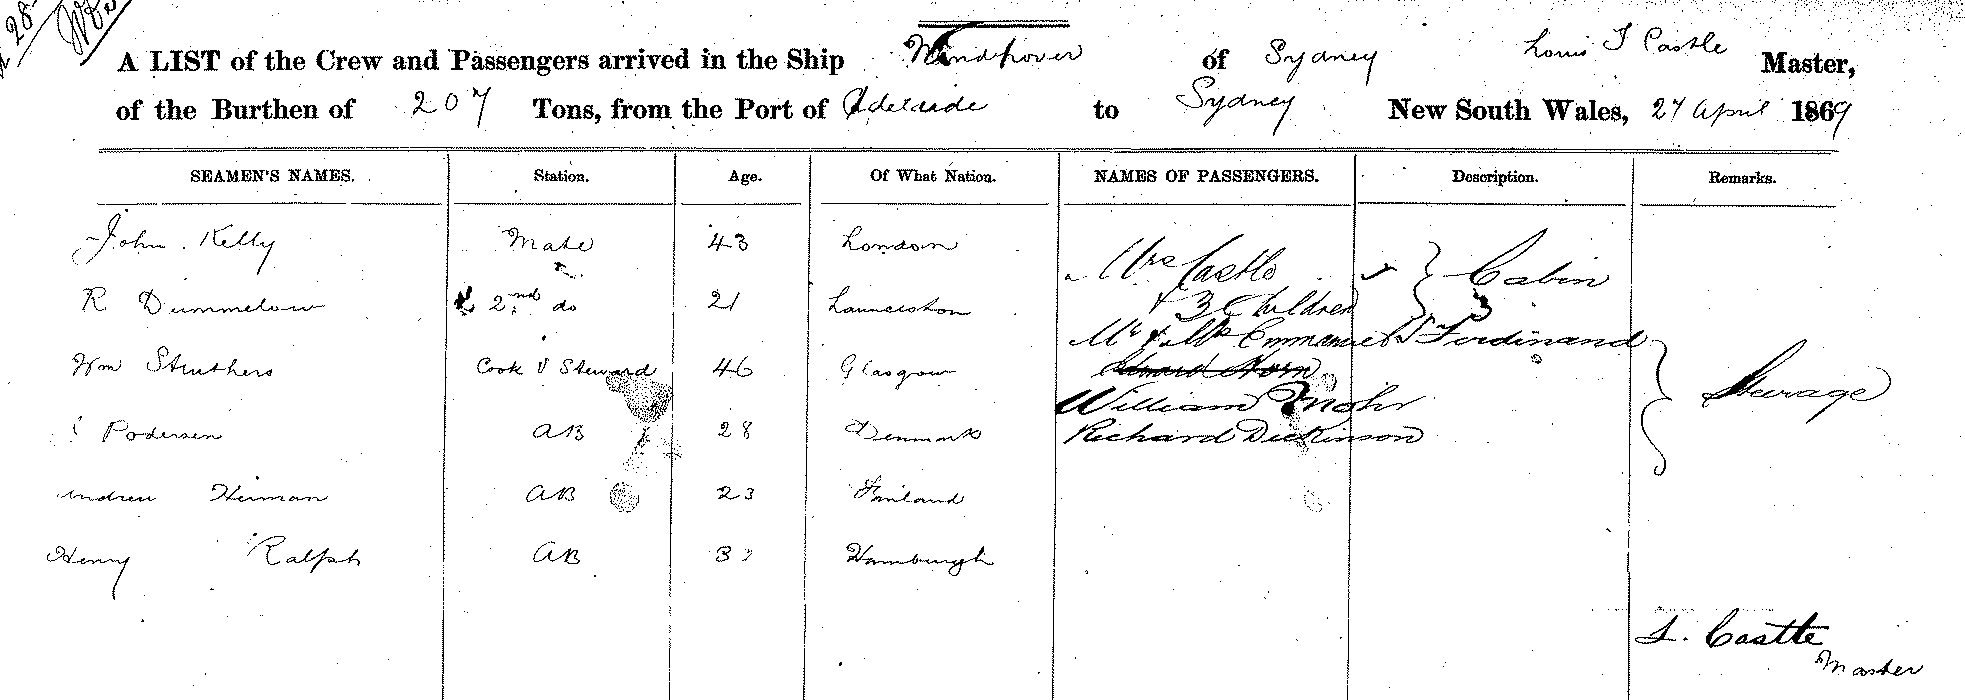 28
A LIST of the Crew and Passengers arrived in the Ship Windhover of Sydney Louis T Castle Master,
of the Burthen of 207 Tons, from the Port of Adelaide to Sydney New South Wales, 27 April 1869
SEAMEN'S NAMES. Station. Age. Of What Nation. NAMES OF PASSENGERS. Description. Remarks.
John Kelly Mate 43 London Mrs Castle Cabin
R Dummelow 2nd do 21 Launceston & 3 Children 3
Mr & Mrs Emmanuel S Ferdinand
Wm Struthers Cook & Steward 46 Glasgow Edward Horn Steerage
William Mohr
Podersen AB 28 Denmark Richard Dickinson
Andrew Heiman AB 23 Finland
Henry Ralph AB Hamburgh
L. Castle
Master